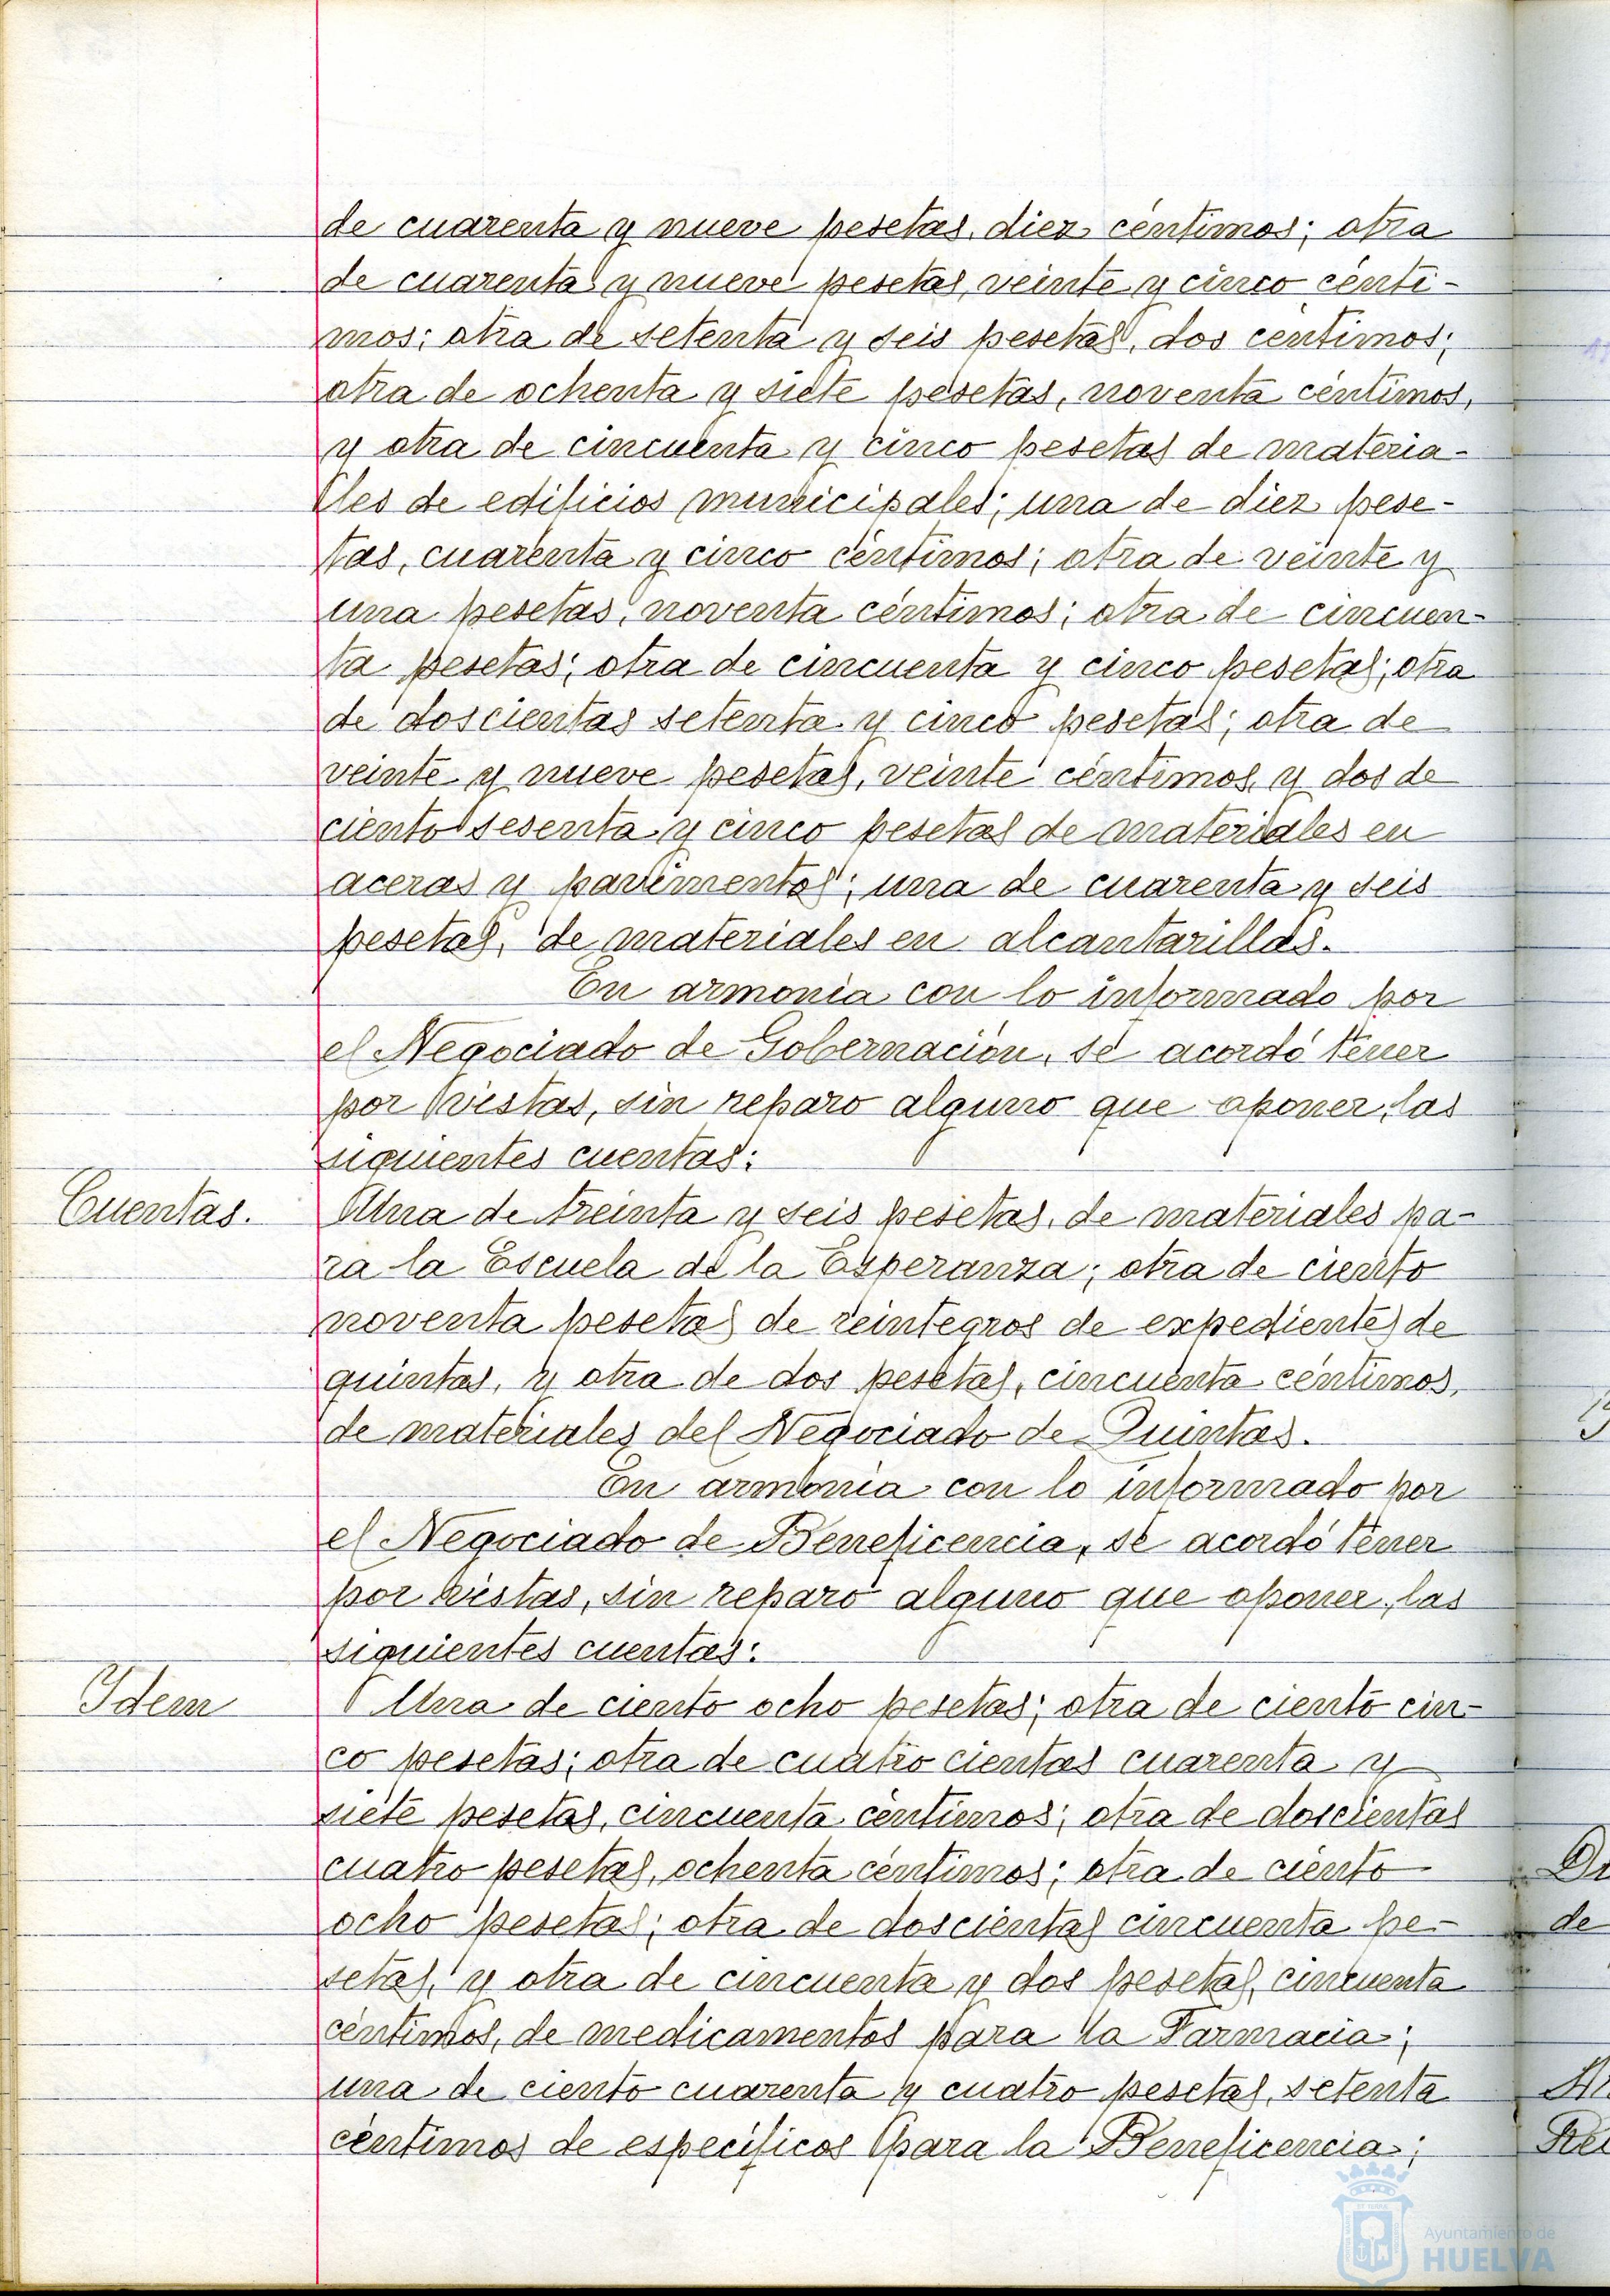 de cuarenta y nueve pesetas, diez céntimos; otra
de cuarenta y nueve pesetas, veinte y cinco cénti-
mos; otra de setenta y seis pesetas, dos centimos;
otra de ochenta y siete pesetas, noventa céntimos,
y otra de cincuenta y cinco pesetas de materia-
les de edificios municipales; una de diez pese-
tas, cuarenta y cinco céntimos; otra de veinte y
una pesetas, noventa céntimos; otra de cincuen-
ta pesetas; otra de cincuenta y cinco pesetas; otra
de doscientas setenta y cinco pesetas; otra de
veinte y nueve pesetas, veinte céntimos, y dos de
ciento sesenta y cinco pesetas de materiales en
aceras y pavimentos; una de cuarenta y seis
pesetas, de materiales en alcantarillas.
En armonía con lo informado por
el Negociado de Gobernación, se acordó tener
por vistas, sin reparo alguno que oponer, las
siguientes cuentas:
Cuentas. Una de treinta y seis pesetas, de materiales pa-
ra la Escuela de la Esperanza; otra de ciento
noventa pesetas de reintegros de expedientes de
quintas, y otra de dos pesetas, cincuenta céntimos,
de materiales del Negociado de Quintas.
En armonía con lo informado por
el Negociado de Beneficencia, se acordó tener
por vistas, sin reparo alguno que oponer, las
siguientes cuentas:
Idem Una de ciento ocho pesetas; otra de ciento cin-
co pesetas; otra de cuatro cientas cuarenta y
siete pesetas, cincuenta céntimos; otra de doscientas
cuatro pesetas, ochenta céntimos; otra de ciento
ocho pesetas; otra de doscientas cincuenta pe-
setas, y otra de cincuenta y dos pesetas, cincuenta
céntimos, de medicamentos para la Farmacia;
una de ciento cuarenta y cuatro pesetas, setenta
céntimos de específicos para la Beneficencia;
de
Ayuntamiento de
HUELVA